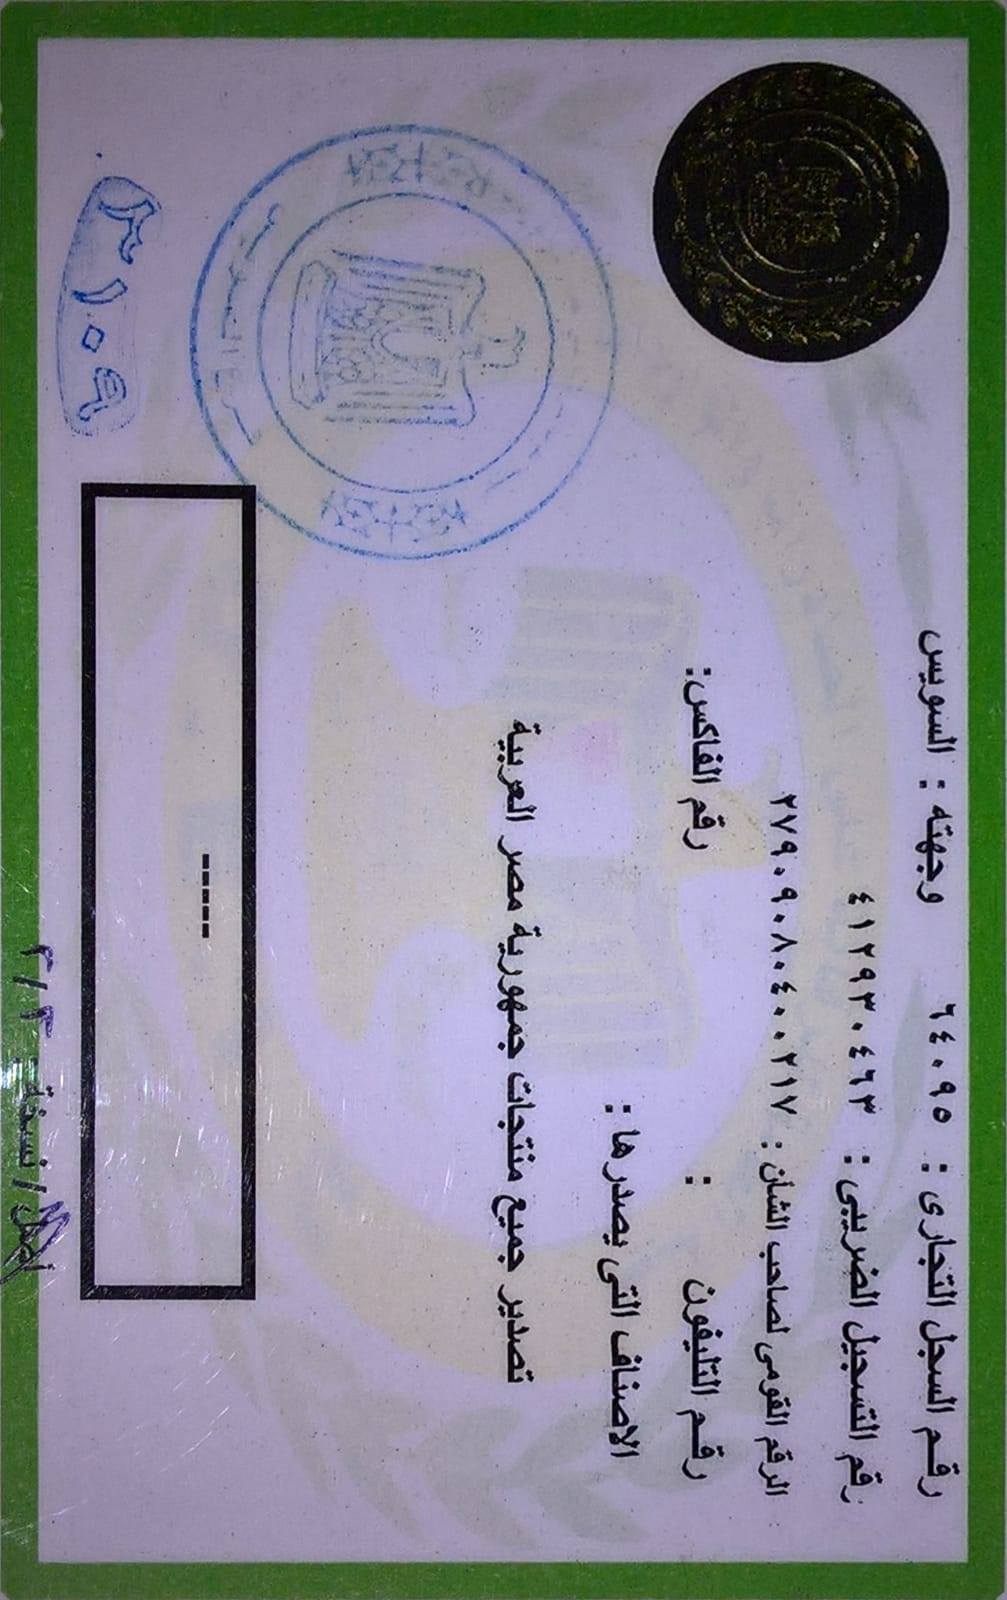 رقم السجل التجارى : ٦٤٠٩٥ وجهته : السويس
رقم التسجيل الضريبى : ٤١٢٩٣٠٤٦٣
الرقم القومى لصاحب الشأن : ٢٧٩٠٩٠٨٠٤٠٠٢١٧
رقم التليفون : رقم الفاكس:
الاصناف التى يصدرها :
تصدير جميع منتجات جمهورية مصر العربية
-----
٣١٠٩